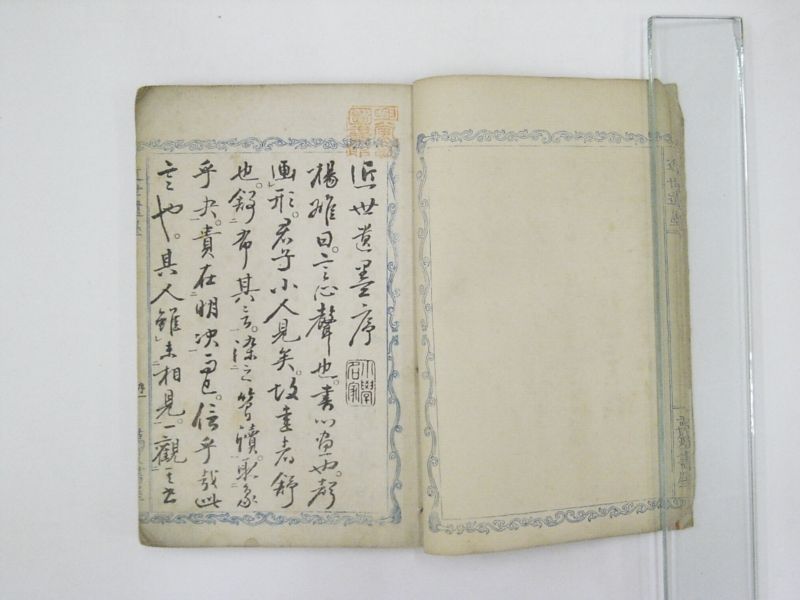 近世遺墨序
小學
名家
楊雄曰。言心聲也。書心畫也。聲
画形。君子小人見矣。故書者舒
也。舒布其言。染之管牘。取象
乎夬。貴在明决而已。信乎哉此
言也。其人雖未相見。一觀其書
近世遺墨